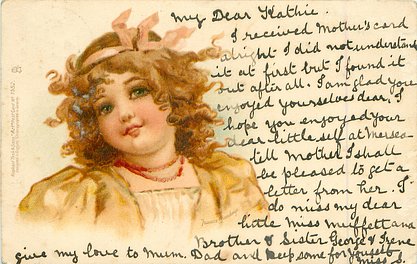 My Dear Kathie.
I received Mother's card
alright I did not understand
it at first but I found it
out after all. I am glad you
enjoyed yourselves dear. I
hope you enjoyed your
dear little self at Mersea
tell Mother I shall
be pleased to get a
letter from her. I
do miss my dear
little Miss Muffett and
Brother & Sister George & Irene
give my love to Mum, Dad and keep some for yourself
Miss S.